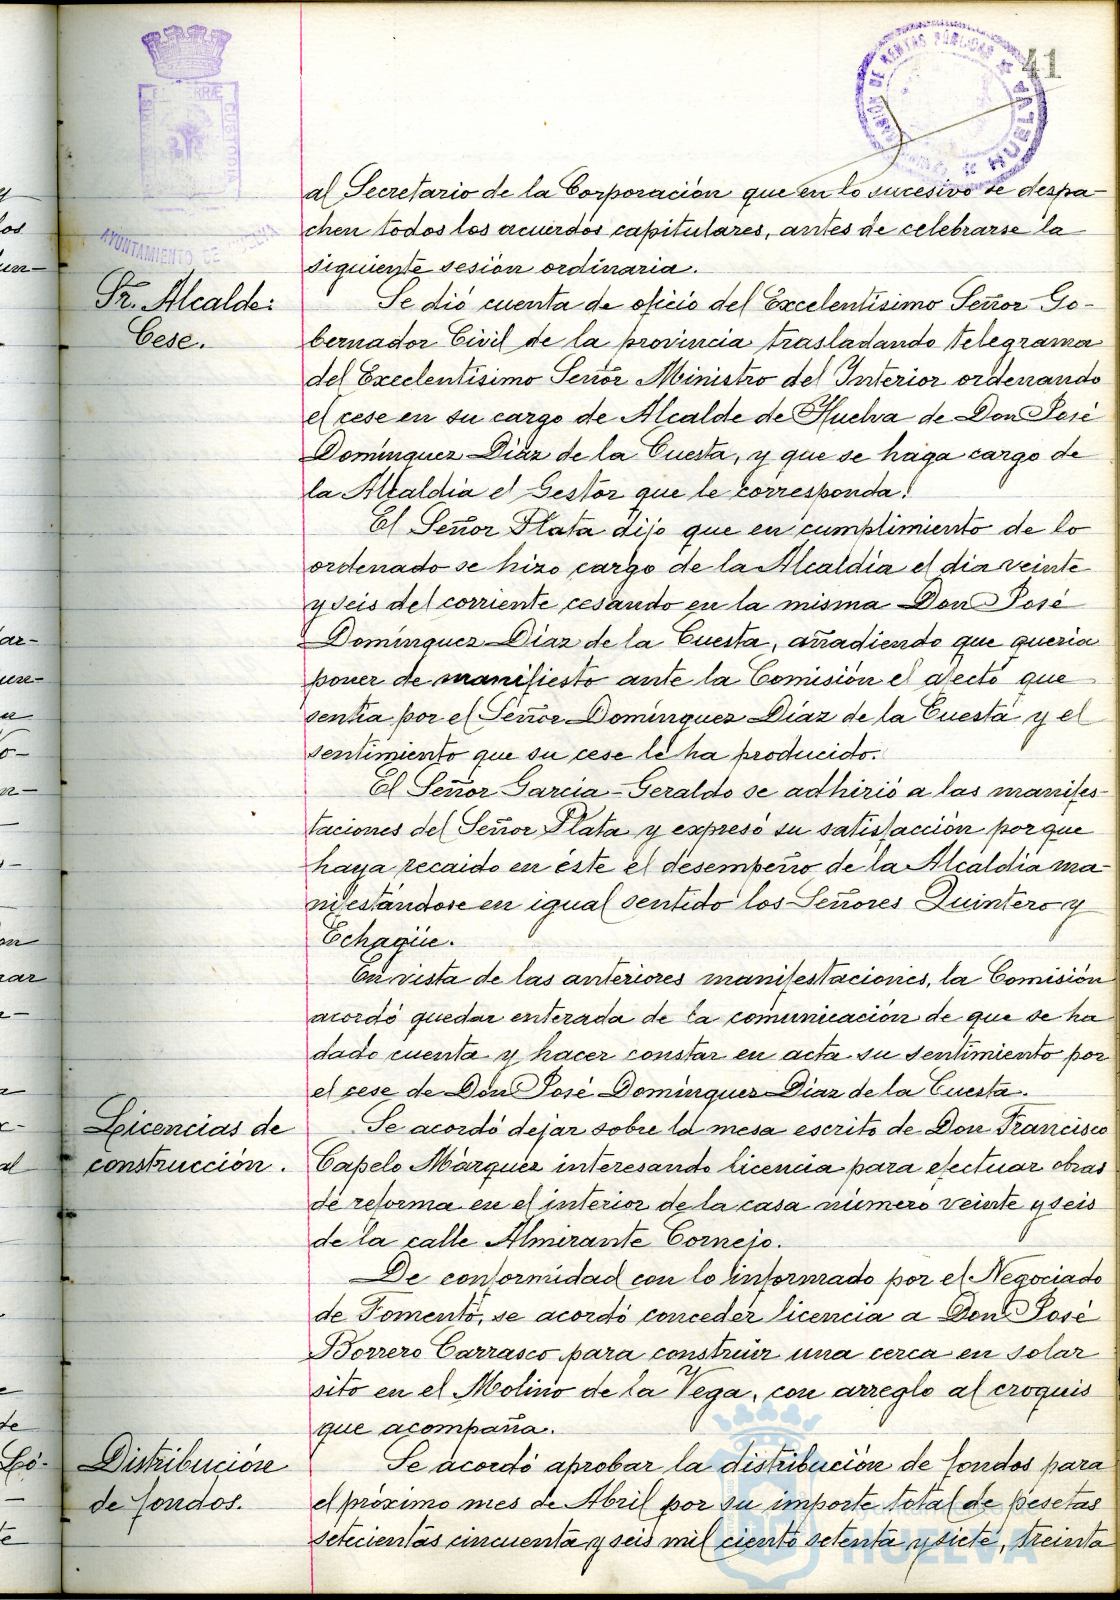 41
AYUNTAMIENTO DE HUELVA
HUELVA
al Secretario de la Corporación que en lo sucesivo se despa-
chen todos los acuerdos capitulares, antes de celebrarse la
siguiente sesión ordinaria.
Sr. Alcalde:
Cese.
Se dió cuenta de oficio del Excelentísimo Señor Go-
bernador Civil de la provincia trasladando telegrama
del Excelentísimo Señor Ministro del Interior ordenando
el cese en su cargo de Alcalde de Huelva de Don José
Domínguez Díaz de la Cuesta, y que se haga cargo de
la Alcaldía el Gestor que le corresponda.
El Señor Plata dijo que en cumplimiento de lo
ordenado se hizo cargo de la Alcaldía el día veinte
y seis del corriente cesando en la misma Don José
Domínguez Díaz de la Cuesta, añadiendo que quería
poner de manifiesto ante la Comisión el afecto que
sentía por el Señor Domínguez Díaz de la Cuesta y el
sentimiento que su cese le ha producido.
El Señor García-Geraldo se adhirió a las manifes-
taciones del Señor Plata y expresó su satisfacción porque
haya recaido en éste el desempeño de la Alcaldía ma-
nifestándose en igual sentido los Señores Quintero y
Echagüe.
En vista de las anteriores manifestaciones, la Comisión
acordó quedar enterada de la comunicación de que se ha
dado cuenta y hacer constar en acta su sentimiento por
el cese de Don José Domínguez Díaz de la Cuesta.
Licencias de
construcción.
Se acordó dejar sobre la mesa escrito de Don Francisco
Capelo Márquez interesando licencia para efectuar obras
de reforma en el interior de la casa número veinte y seis
de la calle Almirante Cornejo.
De conformidad con lo informado por el Negociado
de Fomento, se acordó conceder licencia a Don José
Borrero Carrasco para construir una cerca en solar
sito en el Molino de la Vega, con arreglo al croquis
que acompaña.
Distribución
de fondos.
Se acordó aprobar la distribución de fondos para
el próximo mes de Abril por su importe total de pesetas
setecientas cincuenta y seis mil ciento setenta y siete, treinta
ayuntamiento de
HUELVA